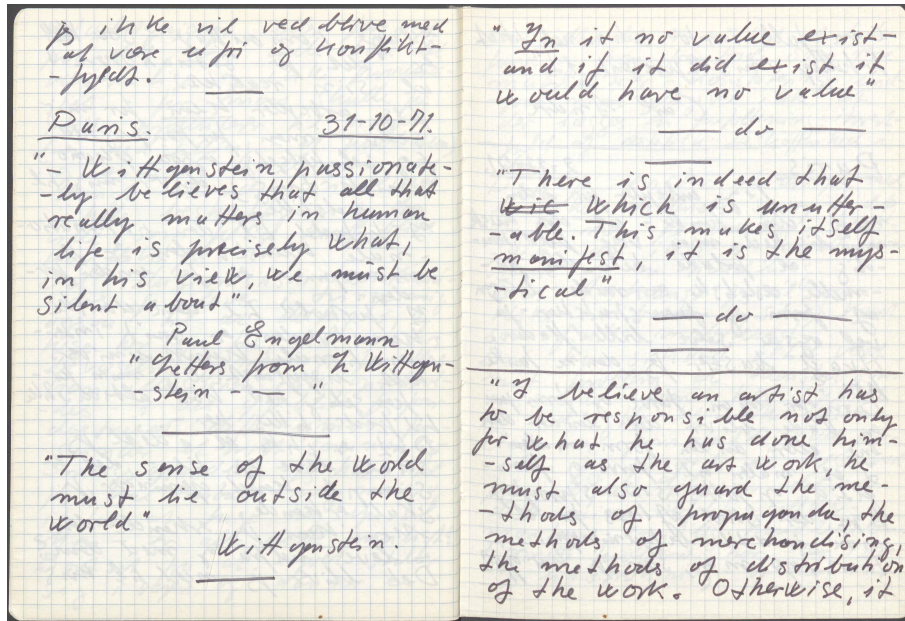 ikke vil ved blive med
at være ufri og konflikt-
-fyldt.
Paris. 31-10-71.
"- Wittgenstein passionate-
-ly believes that all that
really matters in human
life is precisely what,
in his view, we must be
silent about"
Paul Engelmann
"Letters from L Wittgen-
-stein - — "
"The sense of the world
must lie outside the
world"
Wittgenstein.
"In it no value exist-
-and if it did exist it
would have no value"
— do —
"There is indeed that
which is unutter-
-able. This makes itself
manifest, it is the mys-
-tical"
— do —
"I believe an artist has
to be responsible not only
for what he has done him-
-self as the art work, he
must also guard the me-
-thods of propaganda, the
methods of merchandising,
the methods of distribution
of the work. Otherwise, it